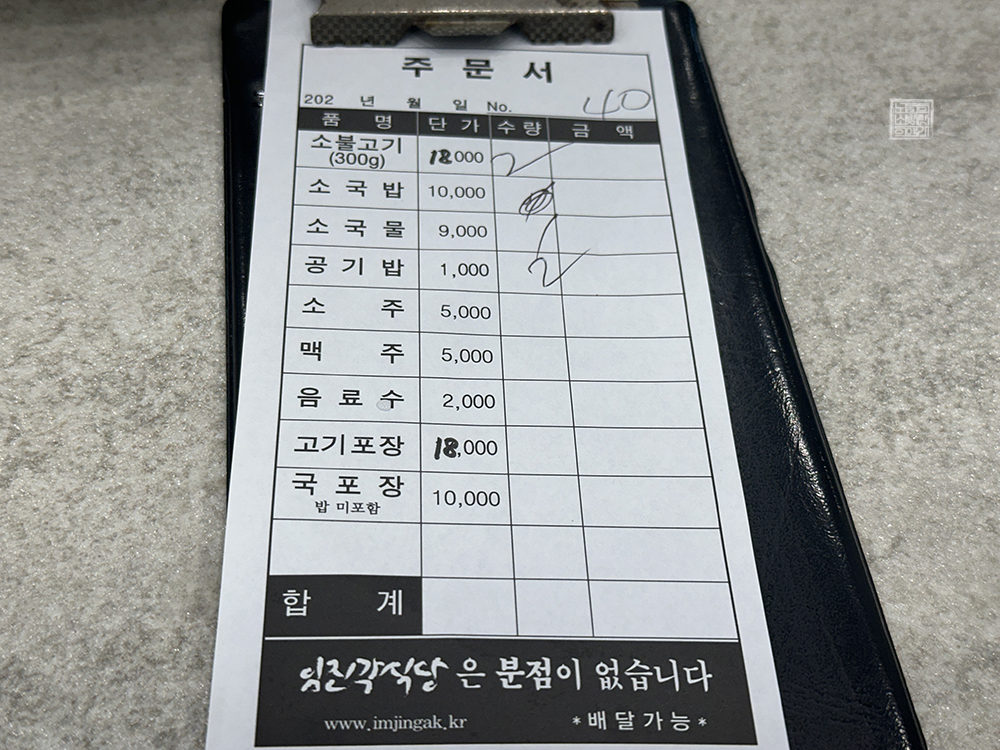 주 문 서
202 년 월 일 No. 40
품 명 단 가 수 량 금 액
소불고기 18000 2
(300g)
소 국 밥 10,000
소 국 물 9,000
공 기 밥 1,000 2
소 주 5,000
맥 주 5,000
음 료 수 2,000
고기포장 18,000
국 포 장 10,000
밥 미포함
합 계
임진각식당은 분점이 없습니다
www.imjingak.kr *배달가능*